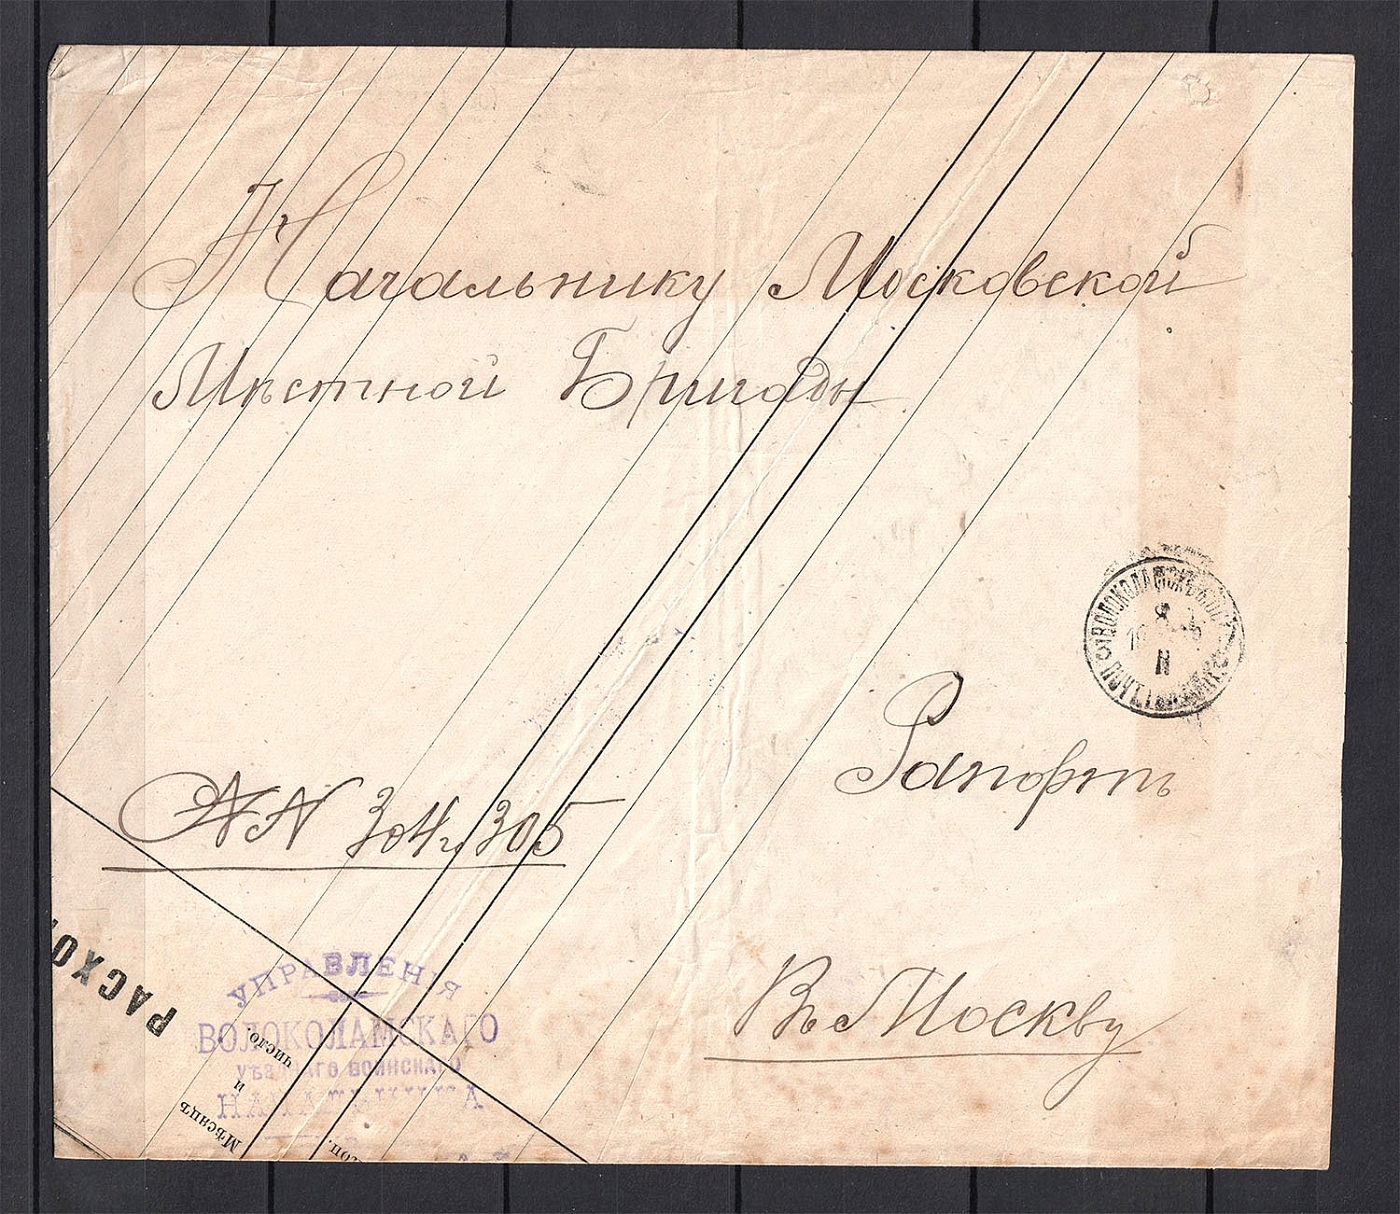 Начальнику Московской
Мѣстной Бригады
ВОЛОКОЛАМСКЪ
Рапортъ
№№ 304 и 305
РАСХО
УПРАВЛЕНІЯ
ВОЛОКОЛАМСКАГО
УѢЗДНАГО ВОИНСКАГО
НАЧАЛЬНИКА
Мѣсяцъ
и
число.
коп.
Въ Москву